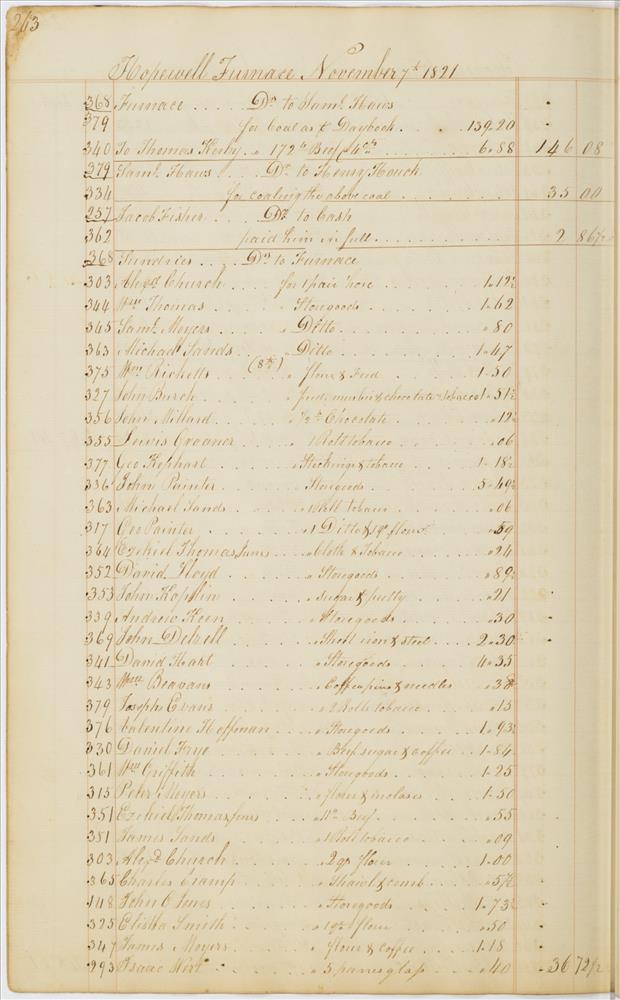 263
Hopewell Furnace November 7th 1821
368 Furnace .... Dr to Saml. Haws
379 for Coal as Daybook . . 139.20
340 To Thomas Kerby . " 172 lb Beef @ 4 cts ... 6.88 146 08
379 Saml. Haws .... Dr to Henry Houck
334 for coaling the above coal 35 00
257 Jacob Fisher .... Dr to Cash
362 paid him in full ........ 2 86½
368 Sundries .... Dr to Furnace
303 Alexd Church .... for 1 pair hose 1.12½
344 Wm Thomas .... " Storegoods 1.62
345 Saml. Meyers .... " Ditto ".80
363 Michael Sands .. " Ditto 1.47
375 Wm Ricketts (8th) " flour & feed 1.50
327 John Burch .... " feed, muslin & chocolate & tobacco 1.51½
356 John Millard .... " ½ lb Chocolate ".12½
355 Lewis Groaner .. " 1 Roll tobacco ".06
377 Geo Kephart .... " Stockings & tobacco 1.18½
336 John Painter .... " Storegoods 5.49½
363 Michael Sands .... " 1 Roll tobacco ".06
317 Geo Painter .... " 1 Ditto & 1 qr flour ".59
364 Ezekiel Thomas Junr .. " Cloth & Tobacco ".24
352 David Lloyd .... " Storegoods ".89½
353 John Koplin .... " sugar & putty ".21
339 Andrew Keen .... " Storegoods ".30
369 John Detrell .... " Sheet iron & steel 2.30
341 David Hart .... " Storegoods 4.35
343 Wm Beavans .... " Coffee, pins & needles ".38
379 Joseph Evans .... " 2 Rolls tobacco ".15
376 Valentine Hoffman .... " Storegoods 1.93½
330 Daniel Frye .... " Beef, sugar & coffee 1.84
361 Wm Griffith .... " Storegoods 1.25
315 Peter Meyers .... " flour & molases 1.50
351 Ezekiel Thomas Junr .. " 11 lb Beef ".55
381 James Sands .... " 1 Roll tobacco ".09
303 Alexd Church .... " 2 qr flour 1.00
365 Charles Cramp .... " Shawl & comb ".57½
148 John C Jones .... " Storegoods 1.73½
325 Elisha Smith .... " 1 qr flour ".50
347 James Meyers .... " flour & coffee 1.18
293 Isaac Wirt .... " 5 panes glass ".40 36 72½